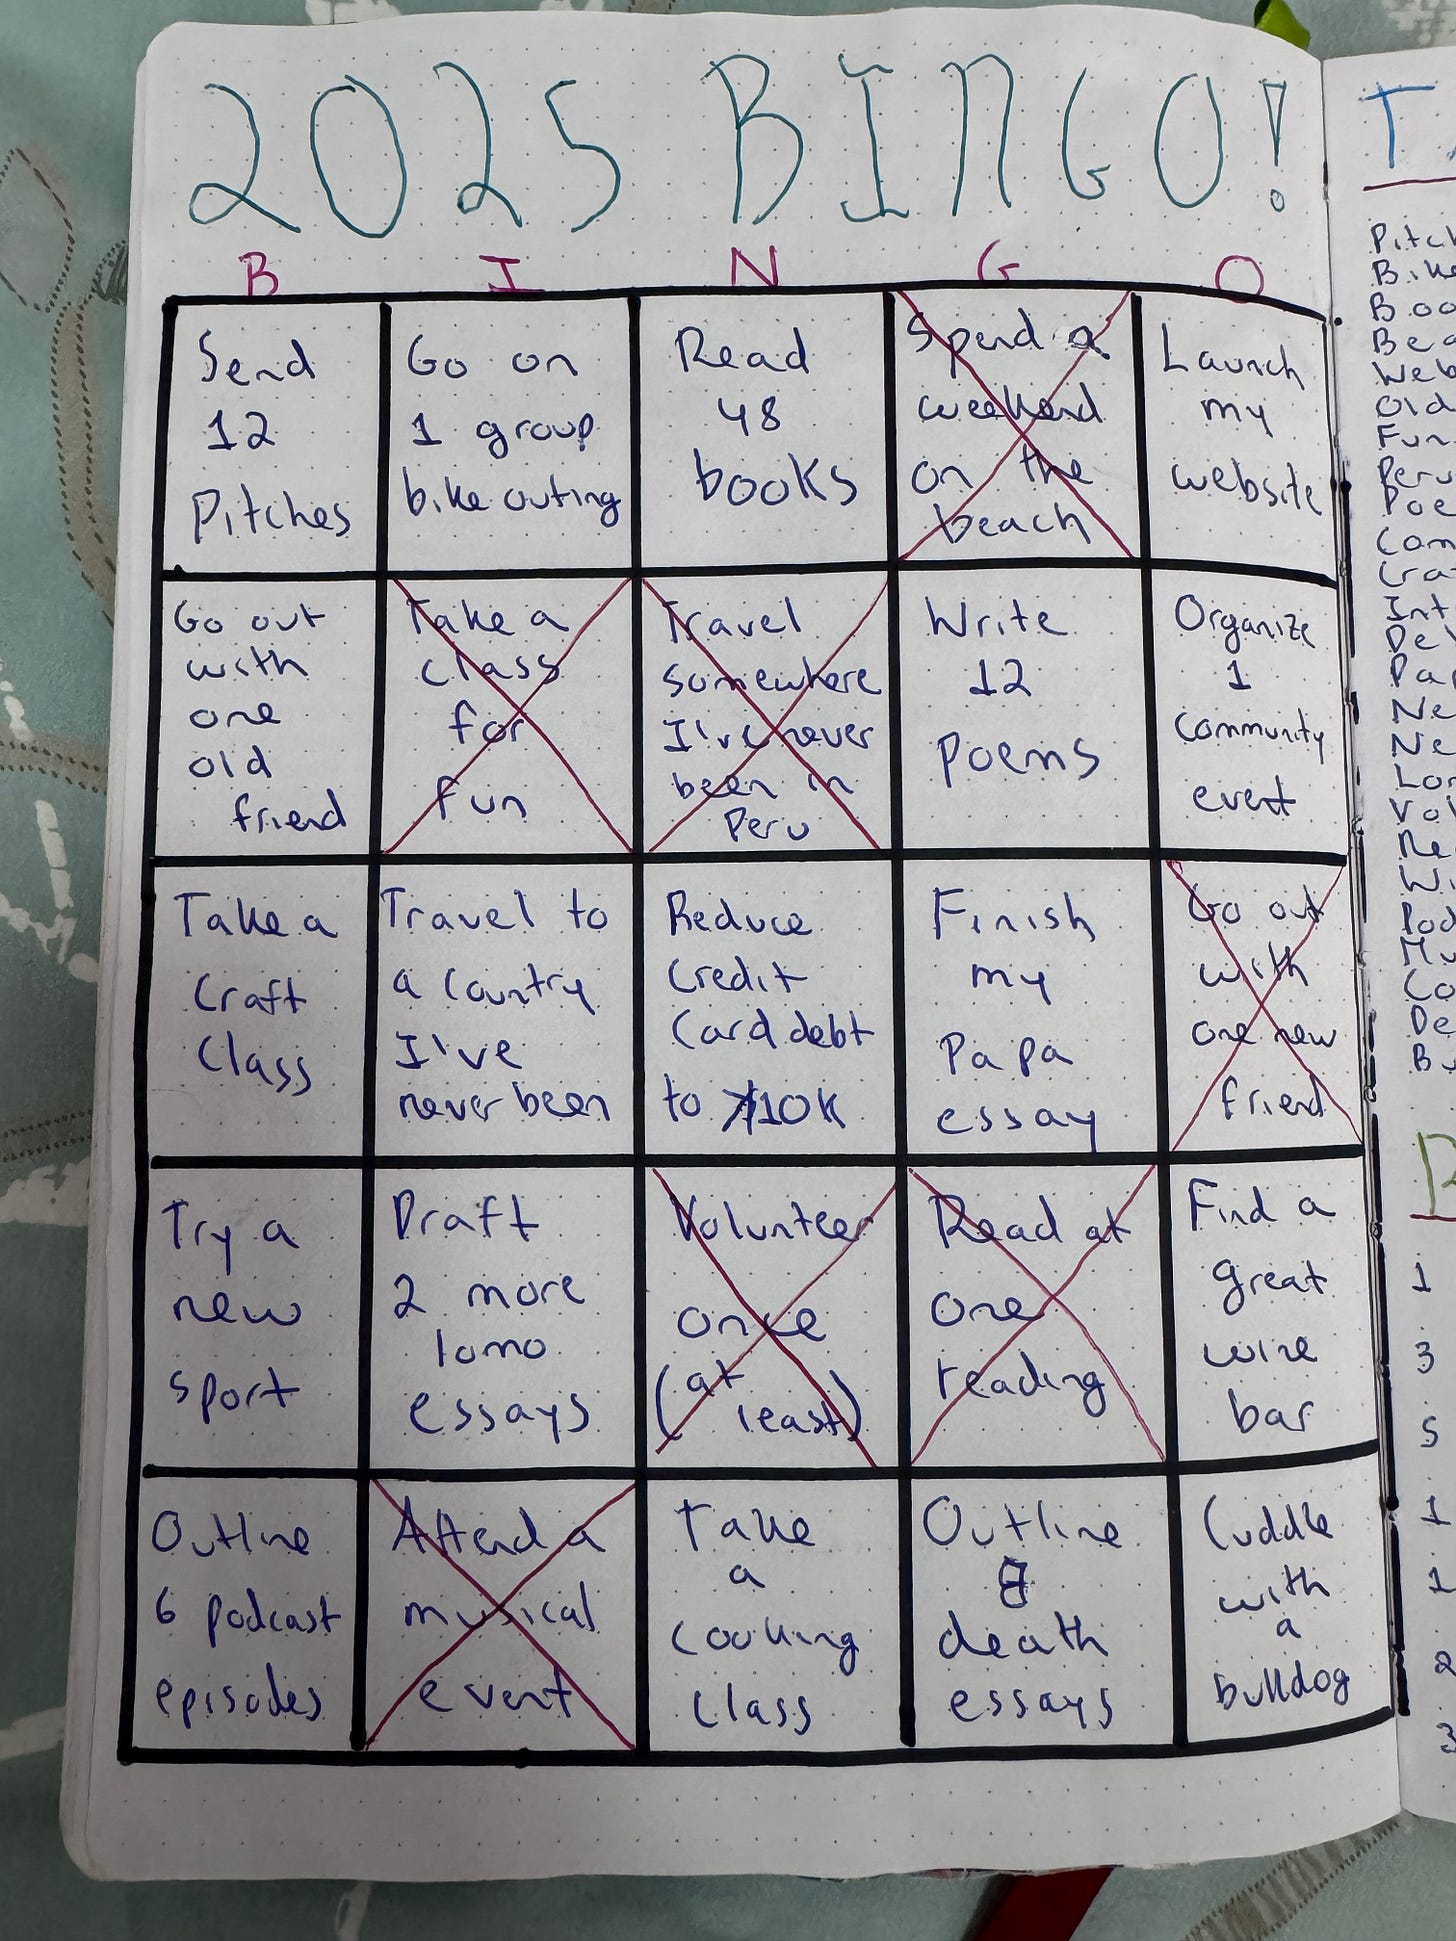 2025 BINGO!
B I N G O
Send
12
Pitches
Go on
1 group
bike outing
Read
48
books
Spend a
weekend
on the
beach
Launch
my
website
Go out
with
one
old
friend
Take a
class
for
fun
Travel
somewhere
I've never
been in
Peru
Write
12
poems
Organize
1
community
event
Take a
Craft
Class
Travel to
a country
I've
never been
Reduce
Credit
Card debt
to 10K
Finish
my
Papa
essay
Go out
with
one new
friend
Try a
new
sport
Draft
2 more
lomo
essays
Volunteer
once
(at
least)
Read at
one
reading
Find a
great
wine
bar
Outline
6 podcast
episodes
Attend a
musical
event
Take
a
cooking
class
Outline
8
death
essays
Cuddle
with
a
bulldog
1
3
5
1
1
2
3